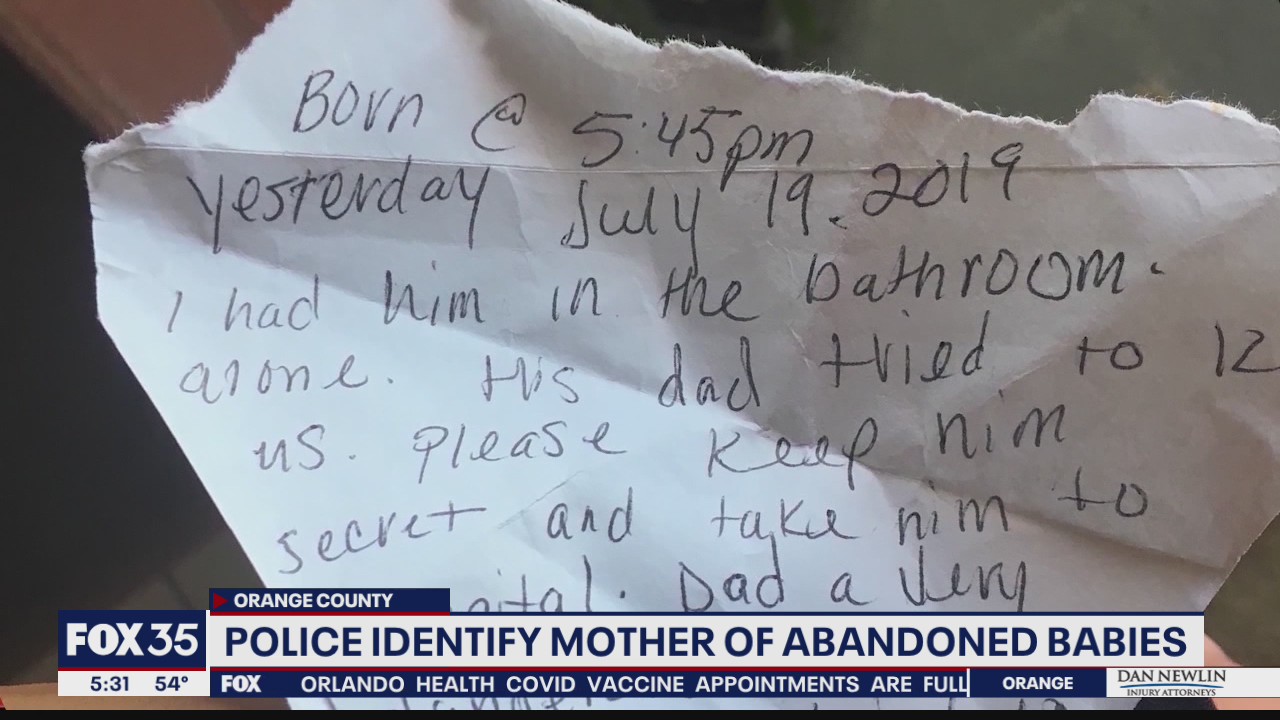 Born @ 5:45pm
yesterday July 19. 2019
I had him in the bathroom.
alone. His dad tried to
us. please keep him
secret and take him to
Dad a very
ORANGE COUNTY
FOX 35
POLICE IDENTIFY MOTHER OF ABANDONED BABIES
5:31 54° FOX ORLANDO HEALTH COVID VACCINE APPOINTMENTS ARE FULL ORANGE
DAN NEWLIN
INJURY ATTORNEYS